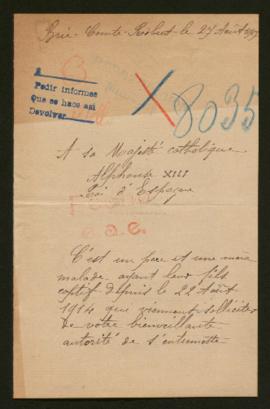 Brie-Comte-Robert le 27 Août
Pedir informes
Que se hace así
Devolver
8035
A sa Majesté catholique
Alphonse XIII
Roi d'Espagne
C'est un père et une mère
malade ayant leur fils
captif depuis le 22 Août
1914 qui viennent solliciter
de votre bienveillante
autorité de s'entremettre